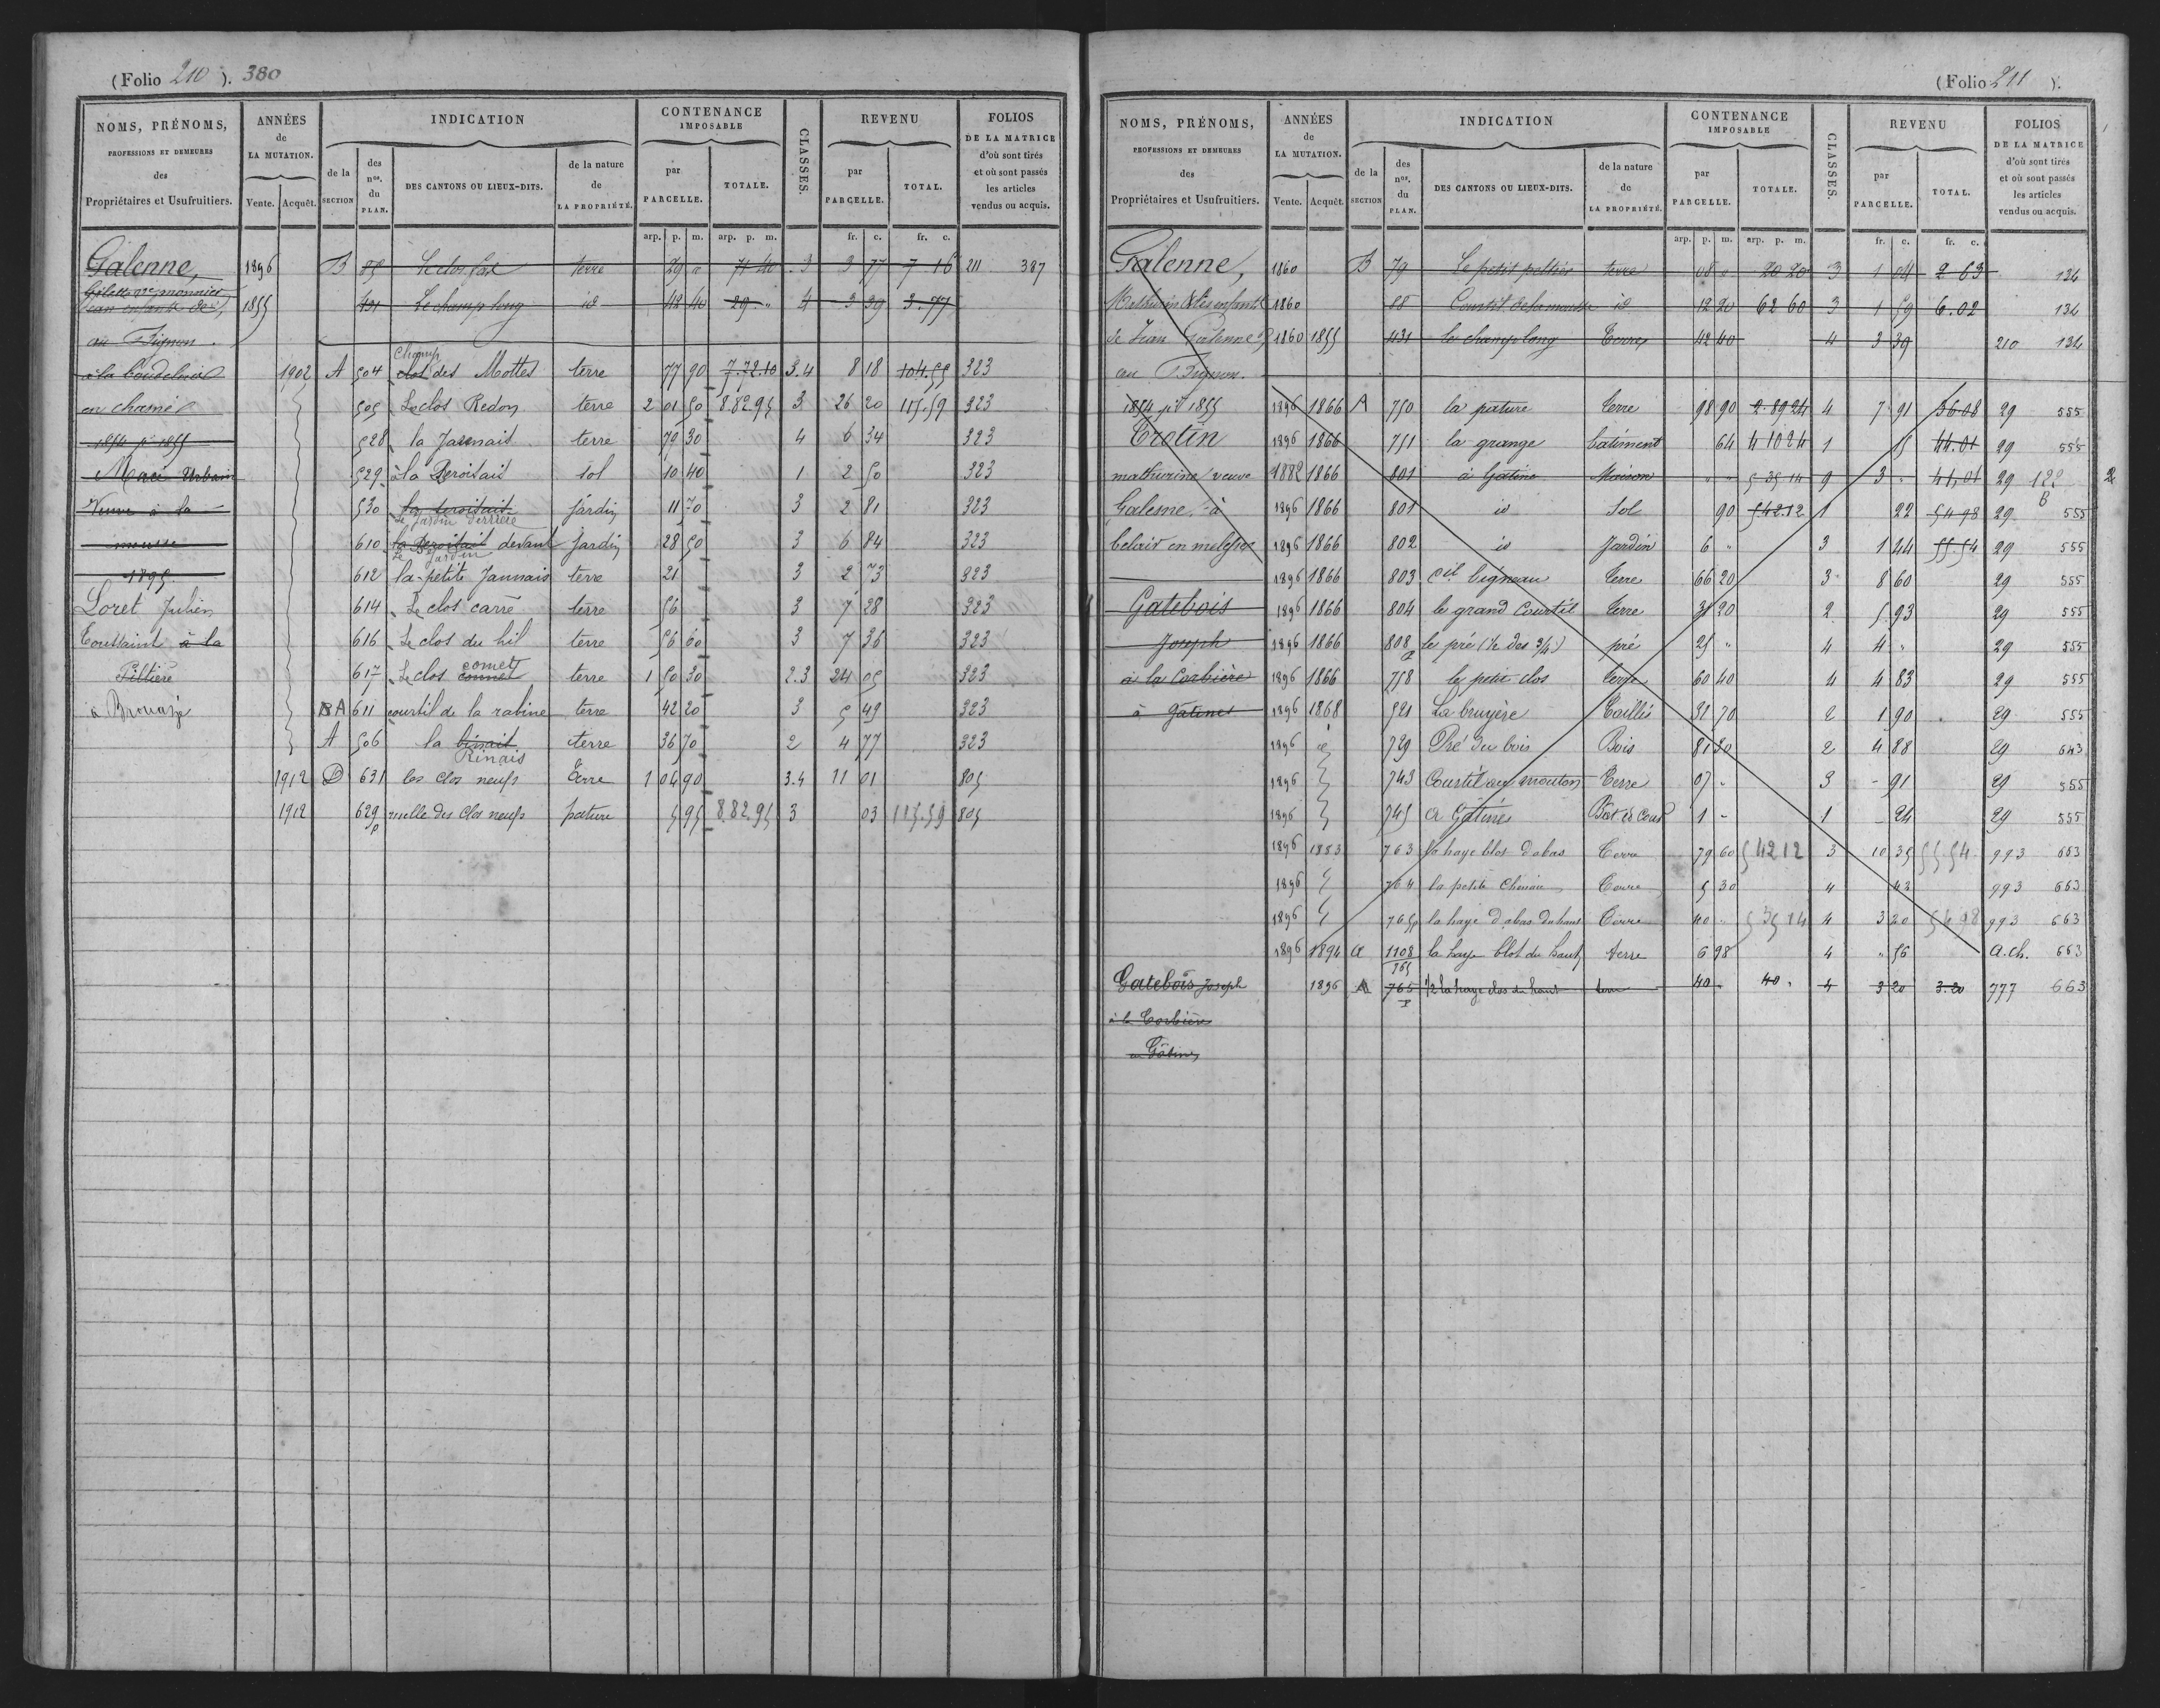 (Folio 210 ). 380
NOMS, PRÉNOMS, PROFESSIONS ET DEMEURES des Propriétaires et Usufruitiers.
ANNÉES de LA MUTATION. Vente. Acquêt.
INDICATION
de la SECTION
des nos. du PLAN.
DES CANTONS OU LIEUX-DITS.
de la nature de LA PROPRIÉTÉ.
CONTENANCE IMPOSABLE
par PARCELLE. TOTALE.
CLASSES.
REVENU
par PARCELLE. TOTAL.
FOLIOS DE LA MATRICE d'où sont tirés et où sont passés les articles vendus ou acquis.
arp. p. m. arp. p. m. fr. c. fr. c.
Galenne, 1896 B 88 Le clos terre 29 " 71 40 3 3 77 7 16 211 387
1855 431 Le champ long id 42 40 29 " 4 3 39 3.77
au Pignon.
1902 A 504 clos champ des Mottes terre 77 90 7.72.10 3.4 8 18 104.55 323
en chamé 505 Le clos Redon terre 2 01 50 8.82.95 3 26 20 115.59 323
1854 pr 1855 528 la Jaunais terre 79 30 4 6 34 323
Macé Urbain 529 à la Peroitais sol 10 40 1 2 50 323
Veuve à la 530 Le Jardin derrière jardin 11 70 3 2 81 323
mousse 610 la Peroitais Le Jardin devant jardin 28 50 3 6 84 323
1895 612 la petite Jaunais terre 21 3 2 73 323
Loret Julien 614 Le clos carré terre 56 3 7 28 323
Toussaint à la 616 Le clos du hil terre 56 60 3 7 36 323
Piltière 617 Le clos connet comet terre 1 50 30 2.3 24 05 323
à Brouaze B A 611 courtil de la rabine terre 42 20 3 5 49 323
A 506 la binais Rinais terre 36 70 2 4 77 323
1912 D 631 les clos neufs Terre 1 04 90 3.4 11 01 805
1912 629 p ruelle des clos neufs pature 5 95 8.82.95 3 03 115.59 805
(Folio 211 ).
NOMS, PRÉNOMS, PROFESSIONS ET DEMEURES des Propriétaires et Usufruitiers.
ANNÉES de LA MUTATION. Vente. Acquêt.
INDICATION
de la SECTION
des nos. du PLAN.
DES CANTONS OU LIEUX-DITS.
de la nature de LA PROPRIÉTÉ.
CONTENANCE IMPOSABLE
par PARCELLE. TOTALE.
CLASSES.
REVENU
par PARCELLE. TOTAL.
FOLIOS DE LA MATRICE d'où sont tirés et où sont passés les articles vendus ou acquis.
arp. p. m. arp. p. m. fr. c. fr. c.
Galenne, 1860 B 79 Le petit terre 08 " 20 20 3 1 04 2 63 134
Mathurin & les enfants 1860 88 Courtil de la mousse id 12 20 62 60 3 1 59 6.02 134
de Jean Galenne 1860 1855 431 le champ long Terre 42 40 4 3 39 210 134
au Pignon.
1854 pr 1855 1896 1866 A 750 la pature Terre 98 90 2 89 24 4 7 91 36.08 29 555
Trotin 1896 1866 751 la grange batiment 64 4 10 24 1 15 44.01 29 555
mathurine veuve 1882 1866 801 à Gatine Maison " " 5 35 14 9 3 " 41,01 29 122 B 2
Galesne, à 1896 1866 801 id Sol 90 5 42.12 1 22 54 98 29 555
belair en melesse 1896 1866 802 id Jardin 6 " 3 1 44 55.54 29 555
1896 1866 803 ctil bigneau Terre 66 20 3 8 60 29 555
Gatebois 1896 1866 804 le grand Courtil Terre 31 20 2 5 93 29 555
Joseph 1896 1866 808 p le pré (1/2 des 3/4) pré 25 " 4 4 " 29 555
à la Corbière 1896 1866 758 le petit clos terre 60 40 4 4 83 29 555
à Gatines 1896 1868 521 La bruyère Taillis 31 70 2 1 90 29 555
1896 729 Pré du bois Bois 81 30 2 4 88 29 643
1896 743 Courtil aux moutons Terre 07 " 3 - 91 29 555
1896 745 à Gatines Bat et Cour 1 - 1 - 24 29 555
1896 1883 763 la haye blot d'abas Terre 79 60 5 42 12 3 10 35 55.54 993 663
1896 764 la petite Terre 5 30 4 42 993 663
1896 765 p la haye d'abas du haut Terre 40 " 5 35 14 4 3 20 54 98 993 663
1896 1894 a 1108 765 la haye blot du haut terre 6 98 4 " 56 a.ch. 663
Gatebois Joseph 1896 A 765 p 1/2 la haye clos du haut terre 40 " 40 " 4 3 20 3.20 777 663
à la Corbière
en Gatine